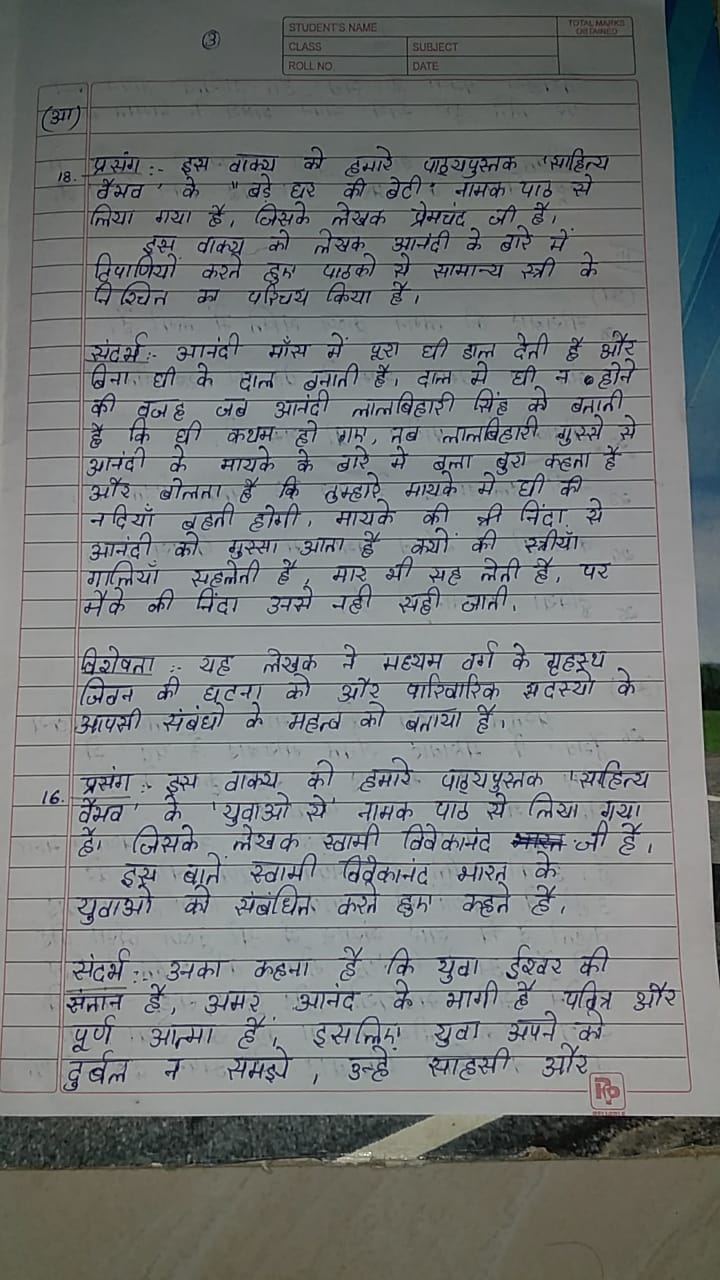 ③
STUDENT'S NAME
TOTAL MARKS OBTAINED
CLASS
SUBJECT
ROLL NO
DATE
(आ)
18. प्रसंग :- इस वाक्य को हमारे पाठ्यपुस्तक 'साहित्य
वैभव' के "बड़े घर की बेटी" नामक पाठ से
लिया गया है, जिसके लेखक प्रेमचंद जी है।
इस वाक्य को लेखक आनंदी के बारे में
टिपाणियाँ करते हुए पाठको से सामान्य स्त्री के
निश्चित का परिचय किया है।
संदर्भ :- आनंदी माँस में पूरा घी डाल देती है और
बिना घी के दाल बनाती है, दाल मे घी न होने
की वजह जब आनंदी लालबिहारी सिंह को बताती
है कि घी कथम हो गए, तब लालबिहारी गुस्से से
आनंदी के मायके के बारे मे बूला बुरा कहता है
और बोलता है कि तुम्हारे मायके मे घी की
नदियाँ बहती होगी, मायके की निंदा से
आनंदी को गुस्सा आता है क्यों की स्त्रीयाँ
गालियाँ सहलेती है, मार भी सह लेती है, पर
मैके की निंदा उनसे नही सही जाती.
विशेषता :- यह लेखक ने मध्यम वर्ग के गृहस्थ
जिवन की घटना को और पारिवारिक सदस्यो के
आपसी संबंधो के महत्व को बताया है।
16. प्रसंग :- इस वाक्य को हमारे पाठ्यपुस्तक 'साहित्य
वैभव' के 'युवाओ से' नामक पाठ से लिया गया
है। जिसके लेखक स्वामी विवेकानंद जी है।
इस बाते स्वामी विवेकानंद भारत के
युवाओ को संबंधित करते हुए कहते है,
संदर्भ :- उनका कहना है कि युवा ईश्वर की
संतान है, अमर आनंद के भागी है पवित्र और
पूर्ण आत्मा है, इसलिए युवा अपने को
दुर्बल न समझे, उन्हे साहसी और
RP
RELIABLE